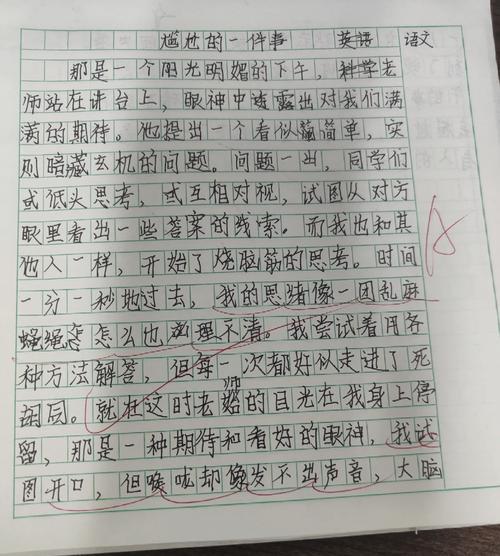 尴尬的一件事 英语 语文
那是一个阳光明媚的下午，科学老
师站在讲台上，眼神中透露出对我们满
满的期待。他提出一个看似简单，实
则暗藏玄机的问题。问题一出，同学们
或低头思考，或互相对视，试图从对方
眼里看出一些答案的线索。而我也和其
他人一样，开始了烧脑筋的思考。时间
一分一秒地过去，我的思绪像一团乱麻
绳怎么也理不清。我尝试着用各
种方法解答，但每一次都好似走进了死
胡同。就在这时老师的目光在我身上停
留，那是一种期待和看好的眼神，我试
图开口，但喉咙却像发不出声音，大脑